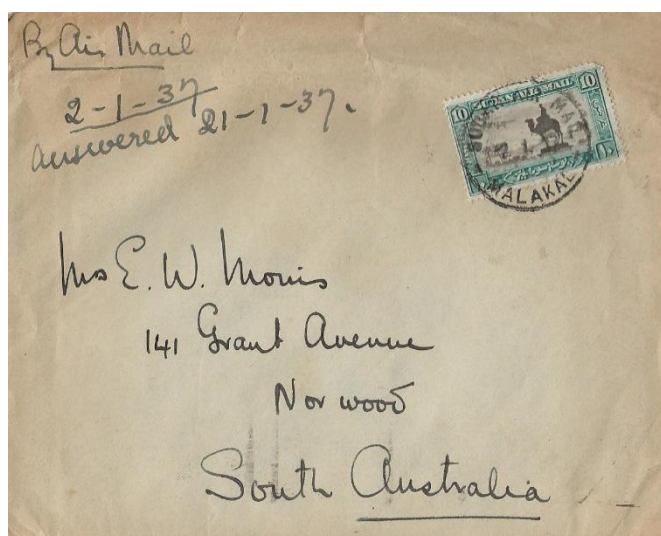 By Air Mail
2-1-37
answered 21-1-37.
10 SUDAN AIR MAIL 10
MALAKAL
Mrs E. W. Morris
141 Grant Avenue
Norwood
South Australia